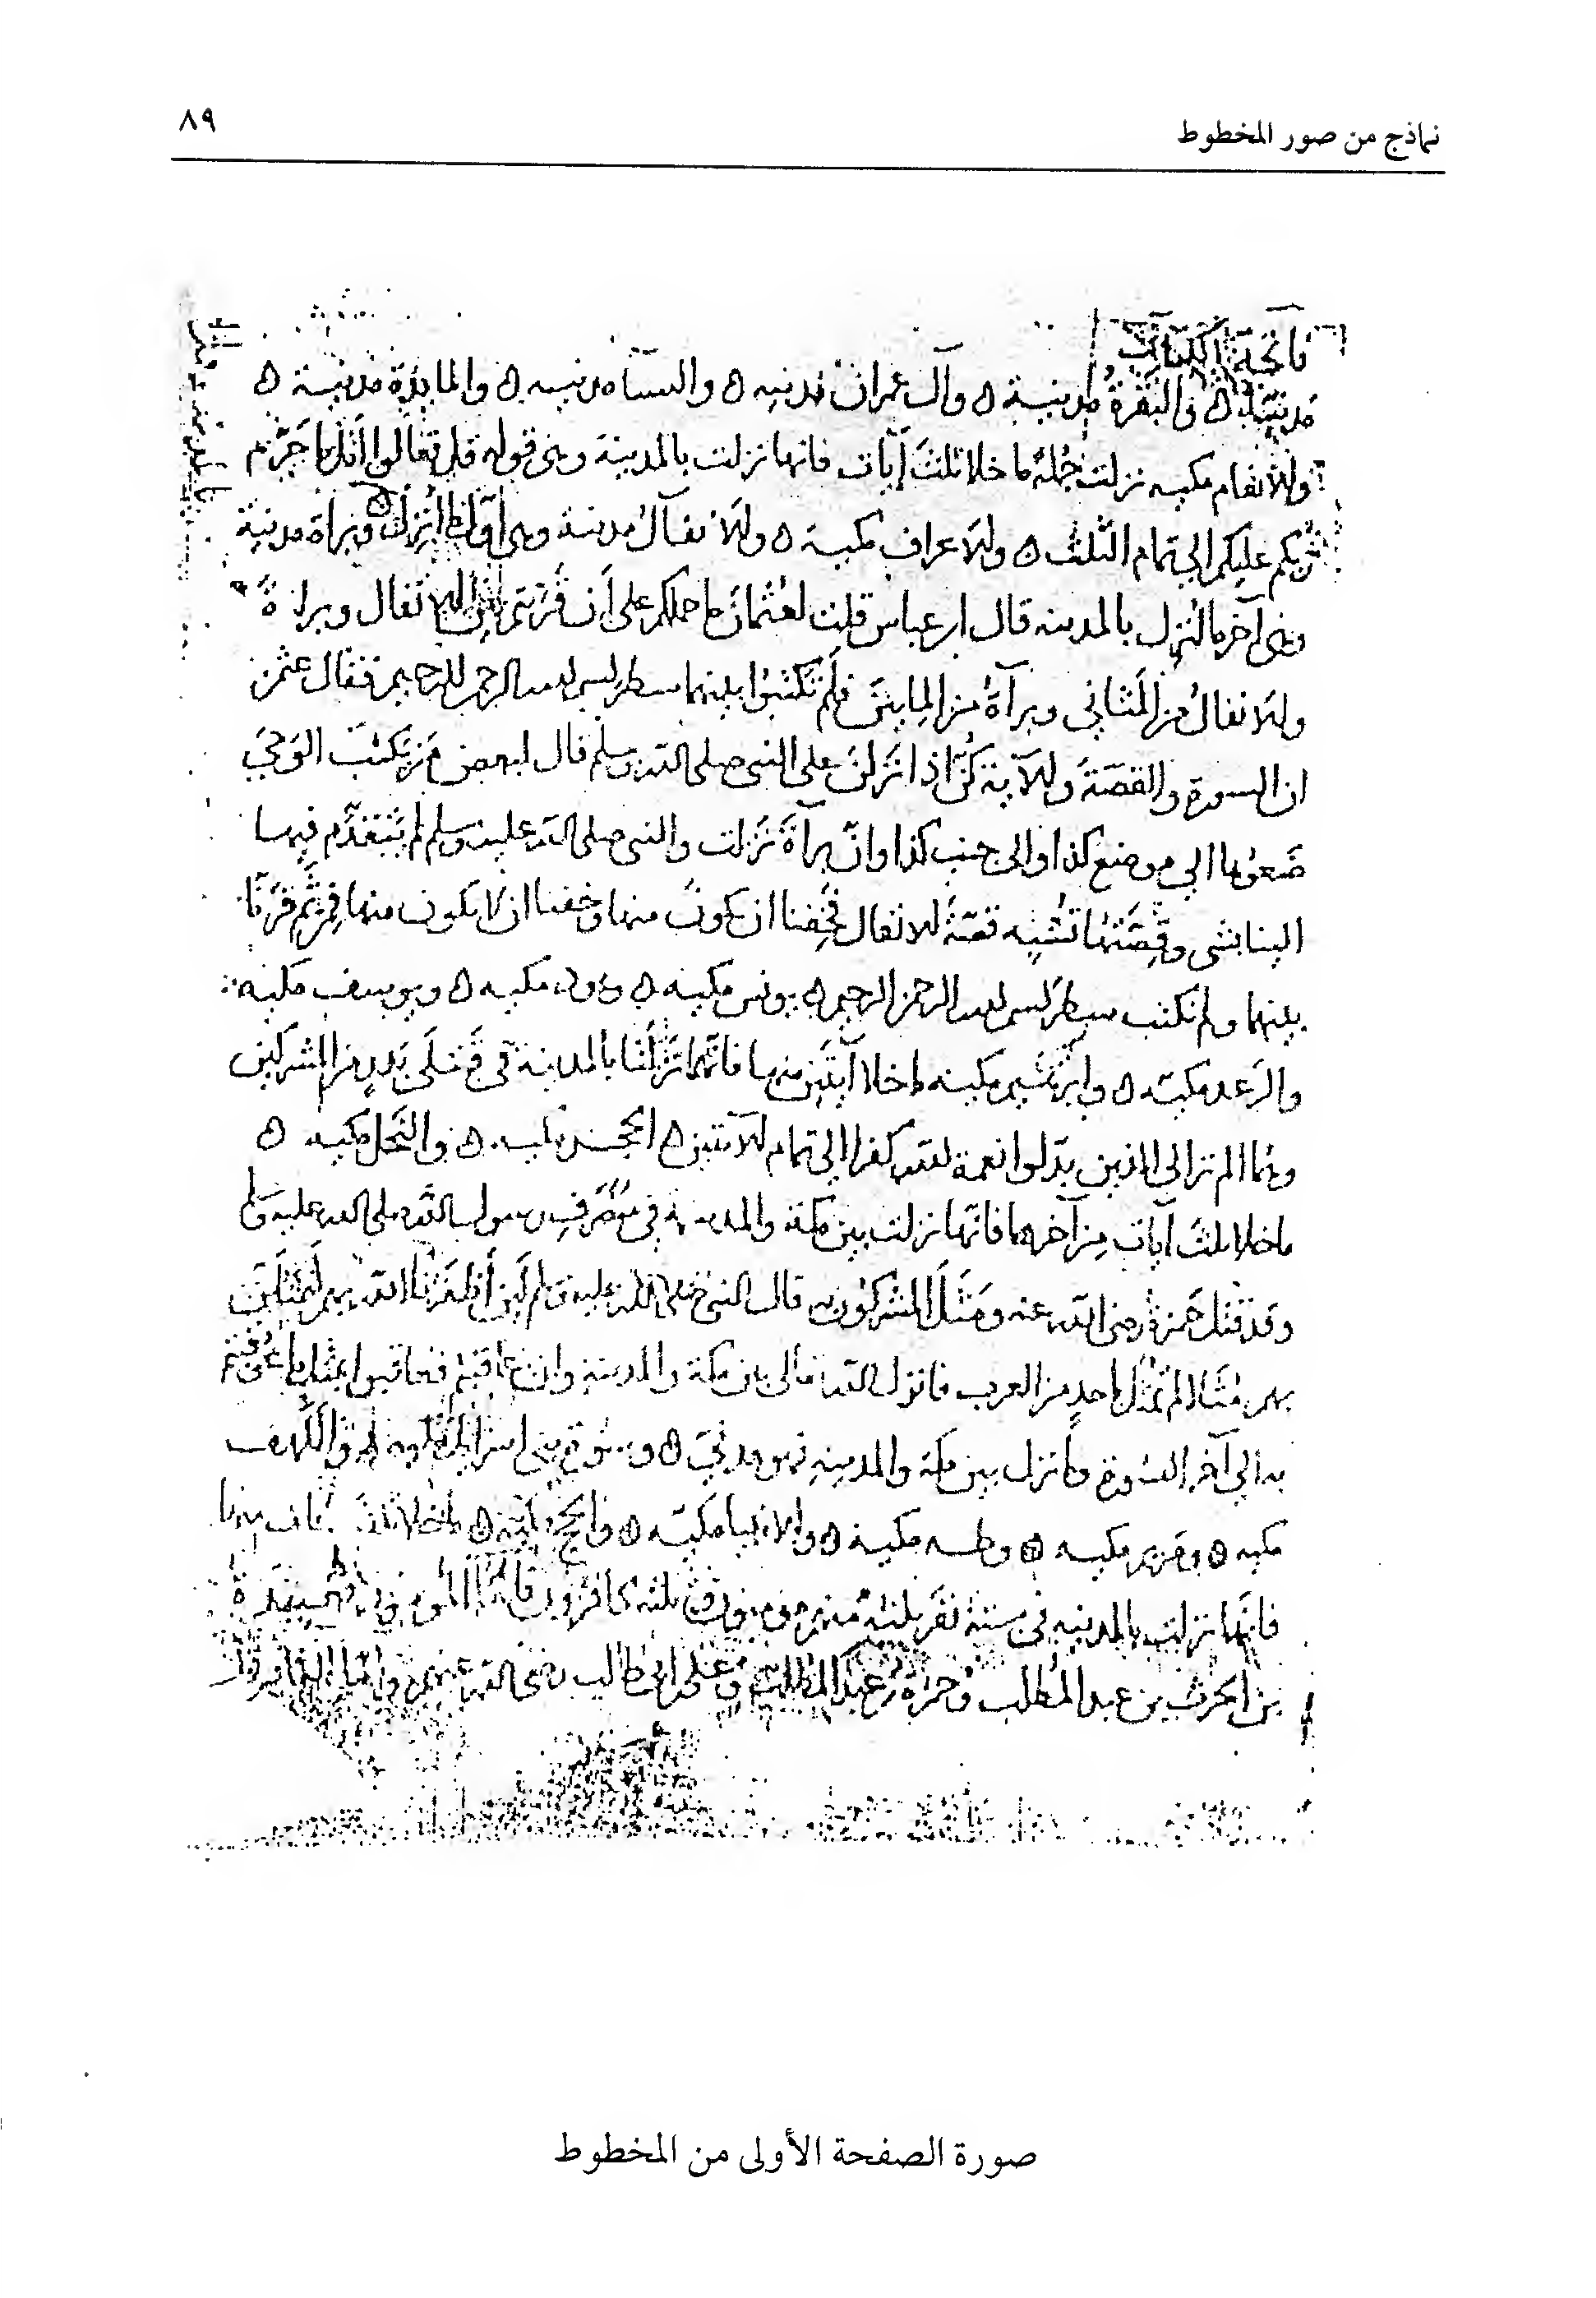 نماذج من صور المخطوط
٨٩
فاتحة الكتاب
مدنية ۞ والبقرة مدنية ۞ وآل عمران مدنيه ۞ والنساء مدنيه ۞ والمايدة مدنية ۞
والانعام مكيه نزلت جملة ما خلا ثلث آيات فانها نزلت بالمدينة وهى قوله قل تعالوا اتل ما حرّم
ربكم عليكم الى تمام الثلث ۞ والاعراف مكية ۞ والانفال مدنية وهى اول ما انزل وبراة مدنية
وهى آخر ما نزل بالمدينه قال ابن عباس قلت لعثمان ما حملكم على أن قرنتم بين الانفال وبراة
والانفال من المثاني وبرآة من المايين فلم تكتبوا بينهما سطر بسم الله الرحمن الرحيم فقال عثمن
ان السورة والقصة والآية كنّ اذا نزلن على النبى صلى الله وسلم قال لبعض من يكتب الوحي
ضعوها الى موضع كذا والى جنب كذا وانّ برآة نزلت والنبى صلى الله عليه وسلم لم يتقدّم فيها
الينا بشى وقصّتها تشبه قصّة الانفال فخفنا ان تكون منها وخفنا ان لا تكون منها فمن ثم فرقنا
بينهما ولم نكتب سطر بسم الله الرحمن الرحيم ۞ يونس مكيه ۞ وهود مكيه ۞ ويوسف مكيه
والرعد مكيّه ۞ وابرهيم مكيه ما خلا آيتين منها فانهما نزلتا بالمدينة في قتلى بدر من المشركين
وهما الم تر الى الذين بدّلوا نعمة الله كفرا الى تمام الآيتين ۞ الحجر مكيه ۞ والنحل مكيه ۞
ما خلا ثلث آيات من آخرها فانها نزلت بين مكة والمدينة في منصرف رسول الله صلى الله عليه وسلم
وقد قتل حمزة رضى الله عنه ومثّل المشركون به قال النبى صلى الله عليه وسلم لين أظفرنا الله بهم لنمثلن
بهم مثلا لم يمثّل باحدٍ من العرب فانزل الله تعالى بين مكة والمدينة وان عاقبتم فعاقبوا بمثل ما عوقبتم
به الى آخر السورة وما نزل بين مكة والمدينه فهو مدني ۞ وسورة بنى اسرايل مكيه ۞ والكهف
مكيه ۞ ومريم مكيه ۞ وطه مكية ۞ والانبيا مكيّه ۞ والحج مكيه ۞ ما خلا ثلث آيات منها
فانها نزلت بالمدينه في ستة نفر ثلثة منهم مومنون وثلثه كافرون فاما المومنون فهم عبيدة
بن الحرث بن عبد المطلب وحمزة بن عبد المطلب وعلى بن ابى طالب رضى الله عنهم واما الكافرون
صورة الصفحة الأولى من المخطوط